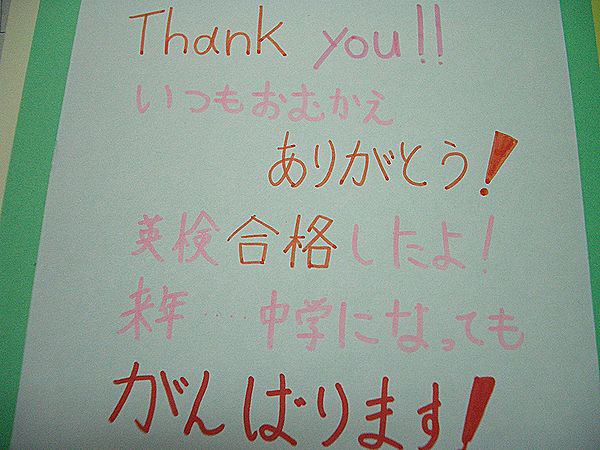 Thank you!!
いつもおむかえ
ありがとう!
英検合格したよ!
来年……中学になっても
がんばります!